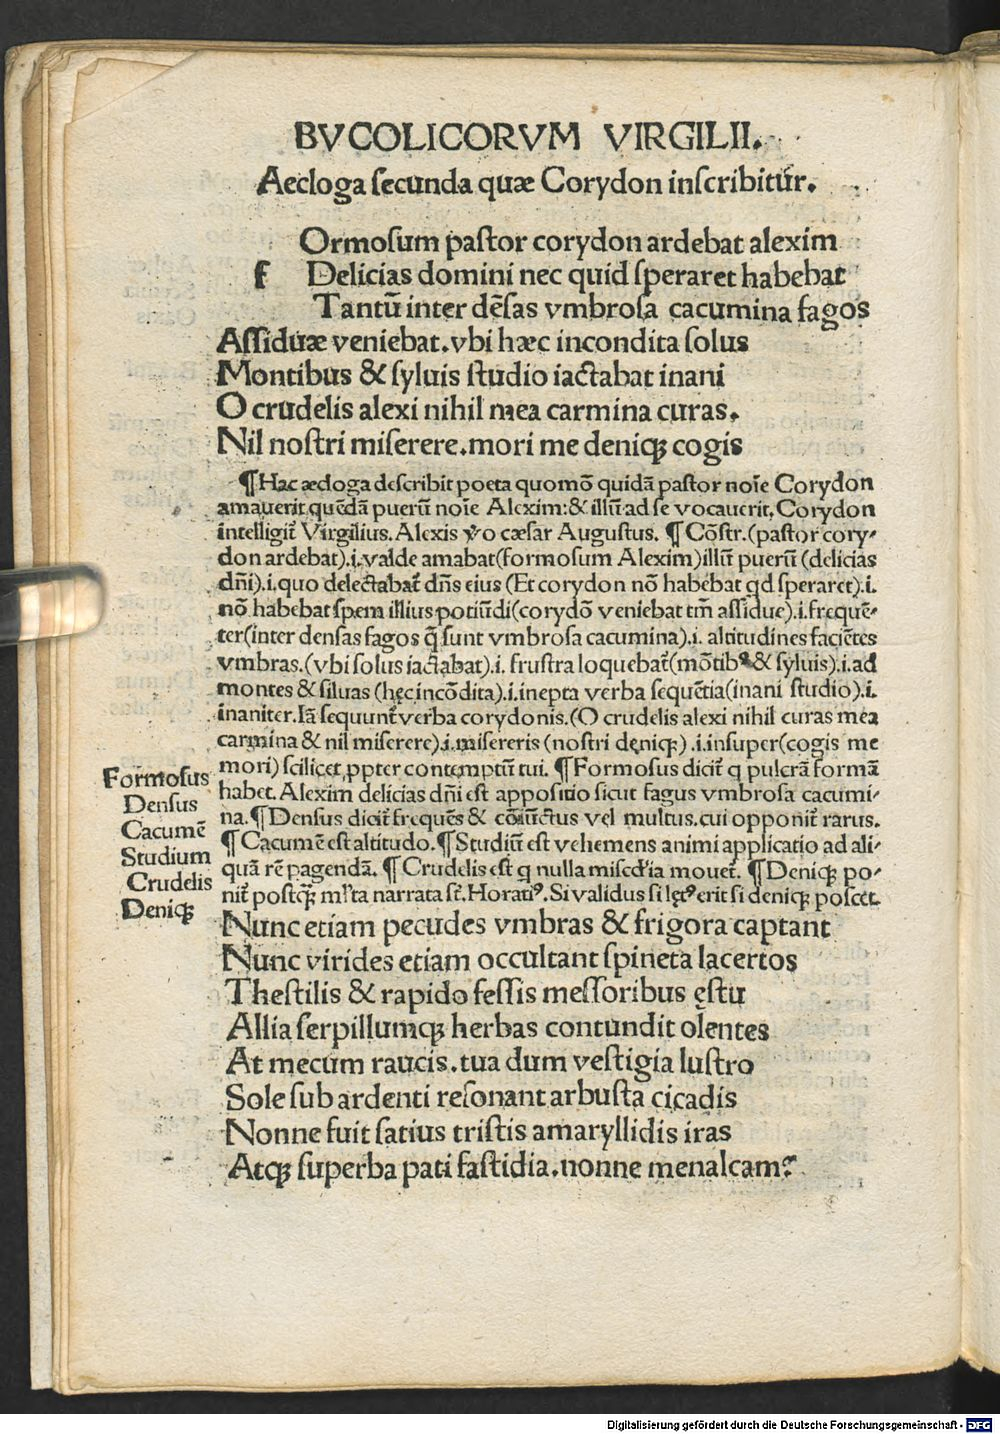 BVCOLICORVM VIRGILII.
Aecloga ſecunda quæ Corydon inſcribitur.
Ormoſum paſtor corydon ardebat alexim
f Delicias domini nec quid ſperaret habebat
Tantū inter dēſas vmbroſa cacumina fagos
Aſſiduæ veniebat.vbi hæc incondita ſolus
Montibus & ſyluis ſtudio iactabat inani
O crudelis alexi nihil mea carmina curas.
Nil noſtri miſerere.mori me deniqꝫ cogis
¶Hac æcloga deſcribit poeta quomō quidā paſtor noīe Corydon
amauerit quēdā puerū noīe Alexim:& illū ad ſe vocauerit.Corydon
intelligit̄ Virgilius.Alexis v̄o cæſar Auguſtus. ¶ Cōſtr.(paſtor cory-
don ardebat).i.valde amabat(formoſum Alexim)illū puerū (delicias
dn̄i).i.quo delectabat̄ dn̄s eius (Et corydon nō habebat qd ſperaret).i.
nō habebat ſpem illius potiūdi(corydō veniebat tm̄ aſſidue).i.frequē-
ter(inter denſas fagos q̄ ſunt vmbroſa cacumina).i. altitudines faciētes
vmbras.(vbi ſolus iactabat).i. fruſtra loquebat̄(mōtibꝰ & ſyluis).i.ad
montes & ſiluas (hęc incōdita).i.inepta verba ſequētia(inani ſtudio).i.
inaniter.Iā ſequunt̄ verba corydonis.(O crudelis alexi nihil curas mea
carmina & nil miſerere).i.miſereris (noſtri dęniqꝫ) .i.inſuper(cogis me
mori) ſcilicet ꝓpter contemptū tui. ¶Formoſus dicit̄ q pulcrā formā
habet.Alexim delicias dn̄i eſt appoſitio ſicut fagus vmbroſa cacumi-
na.¶Denſus dicit̄ frequēs & cōiūctus vel multus.cui opponit̄ rarus.
¶ Cacumē eſt altitudo.¶Studiū eſt vehemens animi applicatio ad ali-
quā rē pagendā. ¶ Crudelis eſt q nulla miſcd̓ia mouet̄. ¶Deniqꝫ po-
nit̄ poſtqꝫ ml̓ta narrata ſt̄.Horatiꝰ.Si validus ſi lętꝰ erit ſi deniqꝫ poſcet.
Formoſus
Denſus
Cacumē
Studium
Crudelis
Deniqꝫ
Nunc etiam pecudes vmbras & frigora captant
Nunc virides etiam occultant ſpineta lacertos
Theſtilis & rapido feſſis meſſoribus ęſtu
Allia ſerpillumqꝫ herbas contundit olentes
At mecum raucis.tua dum veſtigia luſtro
Sole ſub ardenti reſonant arbuſta cicadis
Nonne fuit ſatius triſtis amaryllidis iras
Atqꝫ ſuperba pati faſtidia.nonne menalcam?
Digitalisierung gefördert durch die Deutsche Forschungsgemeinschaft - DFG